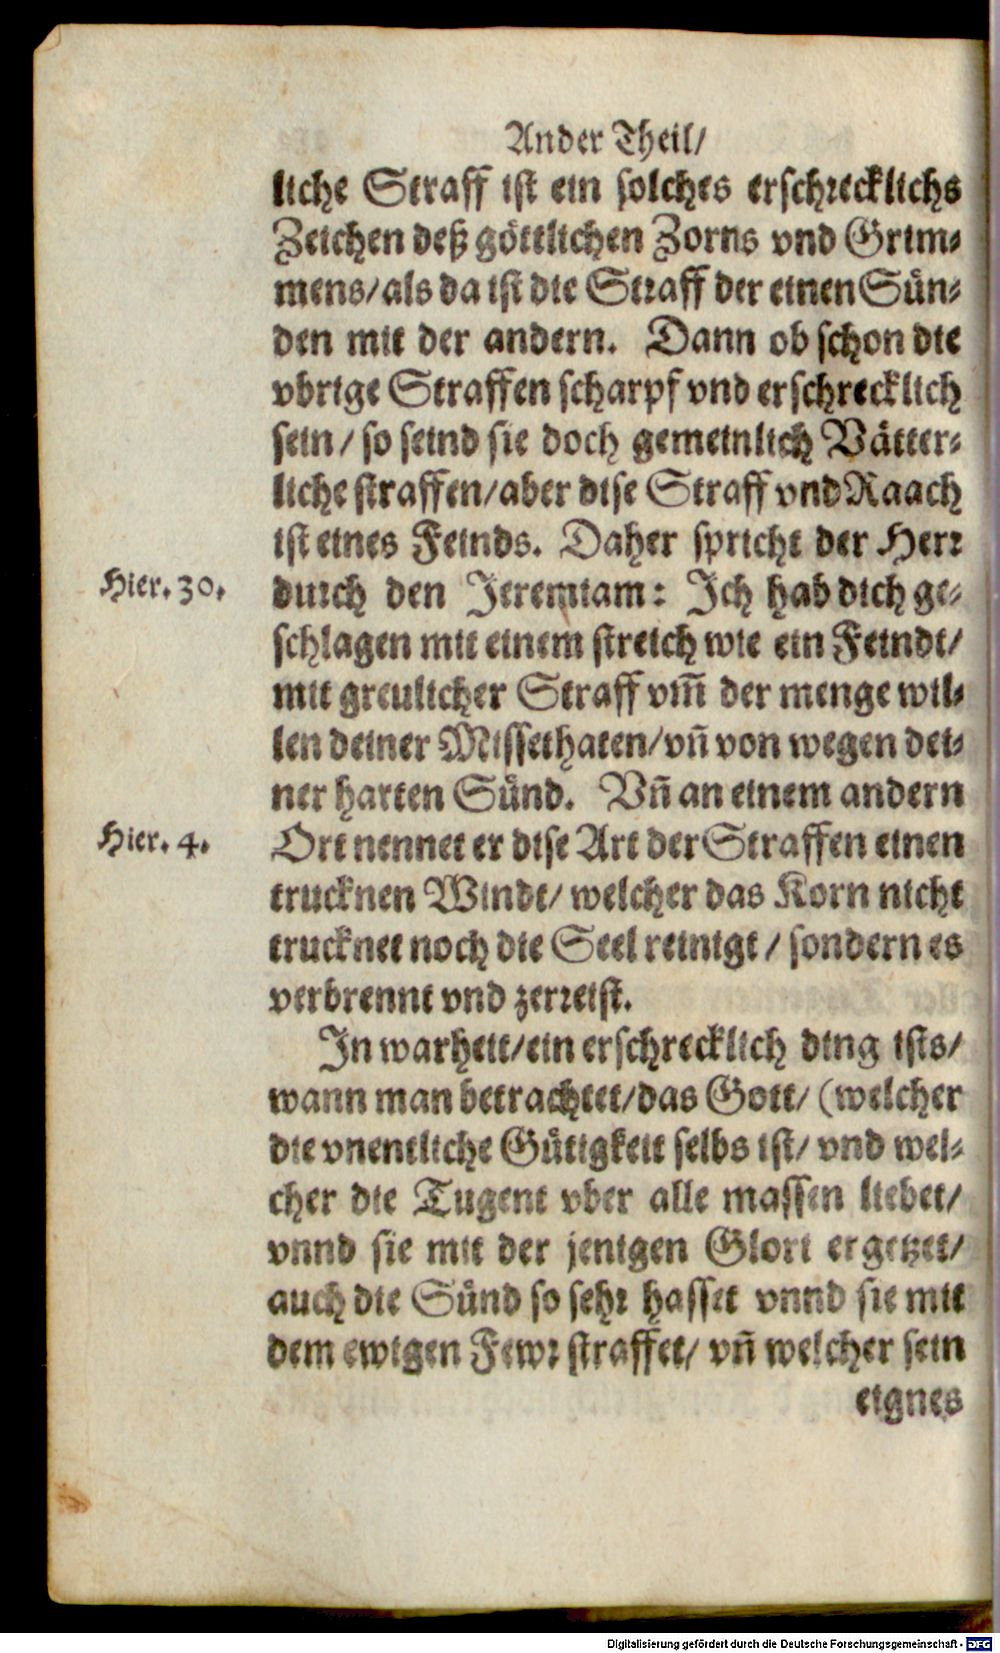 Ander Theil/
liche Straff ist ein solches erschrecklichs
Zeichen deß göttlichen Zorns vnd Grim-
mens/als da ist die Straff der einen Sün-
den mit der andern. Dann ob schon die
vbrige Straffen scharpf vnd erschrecklich
sein/ so seind sie doch gemeinlich Vätter-
liche straffen/aber dise Straff vnd Raach
ist eines Feinds. Daher spricht der Herr
Hier. 30. durch den Jeremiam: Ich hab dich ge-
schlagen mit einem streich wie ein Feindt/
mit greulicher Straff vm̃ der menge wil-
len deiner Missethaten/vñ von wegen dei-
ner harten Sünd. Vñ an einem andern
Hier. 4. Ort nennet er dise Art der Straffen einen
trucknen Windt/ welcher das Korn nicht
trucknet noch die Seel reinigt/ sondern es
verbrennt vnd zerreist.
In warheit/ein erschrecklich ding ists/
wann man betrachtet/das Gott/ (welcher
die vnentliche Gütigkeit selbs ist/ vnd wel-
cher die Tugent vber alle massen liebet/
vnnd sie mit der jenigen Glori ergetzet/
auch die Sünd so sehr hasset vnnd sie mit
dem ewigen Fewr straffet/ vñ welcher sein
eignes
Digitalisierung gefördert durch die Deutsche Forschungsgemeinschaft - DFG